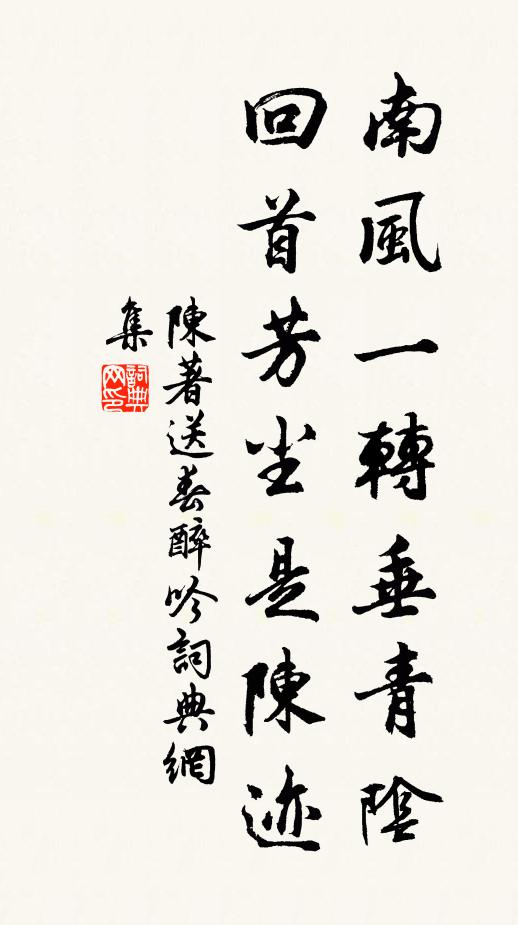 南風一轉垂青陰
回首芳尘是陳迹
陳著送春醉吟詞典網
集
詞典
网印